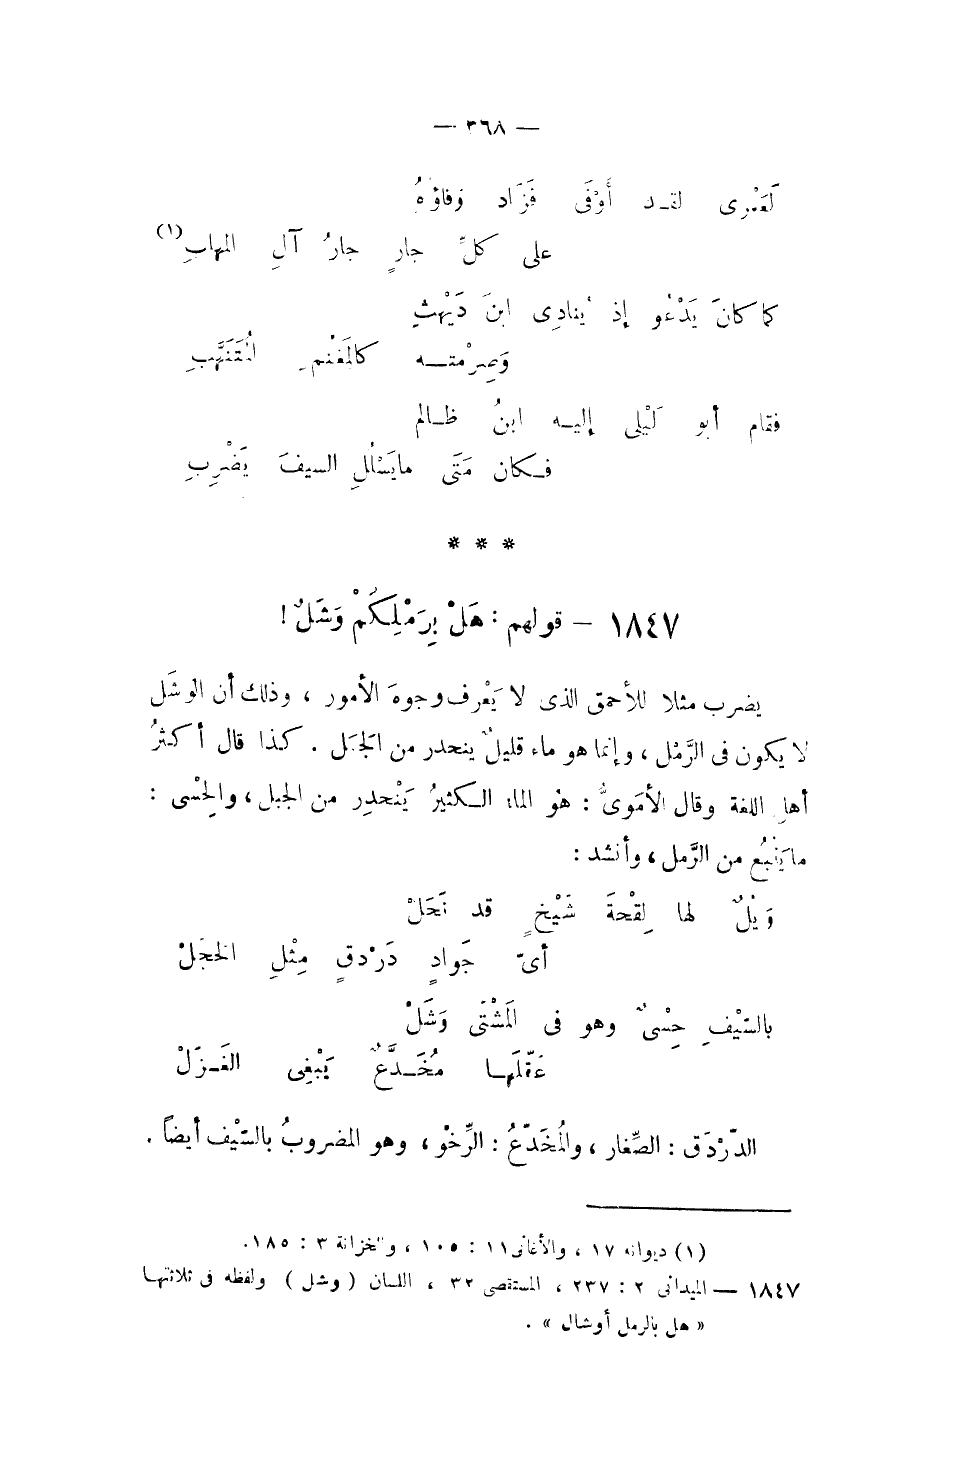 — ٣٦٨ —
لَعَمْرِى لقد أَوْفَى فَزَاد وَفاؤهُ
على كلِّ جارٍ جارُ آلِ المهلبِ (١)
كما كانَ يَدْعُو إذ يُنادِى ابنَ دَيْهَثٍ
وَصِرْمتــه كالمَغْنمِ المُتَنَهَّبِ
فقام أبو لَيْلى إليــه ابنُ ظــالم
فــكان مَتَى مايَسْلُلِ السيفَ يَضْرِبِ
* * *
١٨٤٧ — قولهم : هَلْ بِرَمْلِكُمْ وَشَلٌ !
يضرب مثلا للأحمق الذى لا يَعْرِف وجوهَ الأمور ، وذلك أن الوشَل
لا يكون فى الرَّمْل ، وإنما هو ماء قليلٌ ينحدر من الجَبَل . كذا قال أكثرُ
أهلِ اللغة وقال الأمَوىُّ : هُوَ الماء الــكثيرُ يَنْحدِر من الجبل ، والحِسْى :
ما يَنْبُع من الرَّمل ، وأنشد :
وَيْلٌ لها لِقْحةَ شَيْخٍ قد نَحَلْ
أىّ جَوادٍ دَرْدقٍ مِثْلِ الحَجَلْ
بالصّيْفِ حِسْىٌ وهو فى المَشْتَى وَشَلْ
غفّلَهــا مُخَــدَّعٌ يَبْغِى الغَــزَلْ
الدّرْدَق : الصِّغار ، والمُخَدّعُ : الرِّخْو ، وهو المضروبُ بالسّيْف أيضاً .
(١) ديوانه ١٧ ، والأغانى ١١ : ١٠٥ ، والخزانة ٣ : ١٨٥.
١٨٤٧ — الميدانى ٢ : ٢٣٧ ، المستقصى ٣٢ ، اللسان ( وشل ) ولفظه فى ثلاثتها
« هل بالرمل أوشال » .